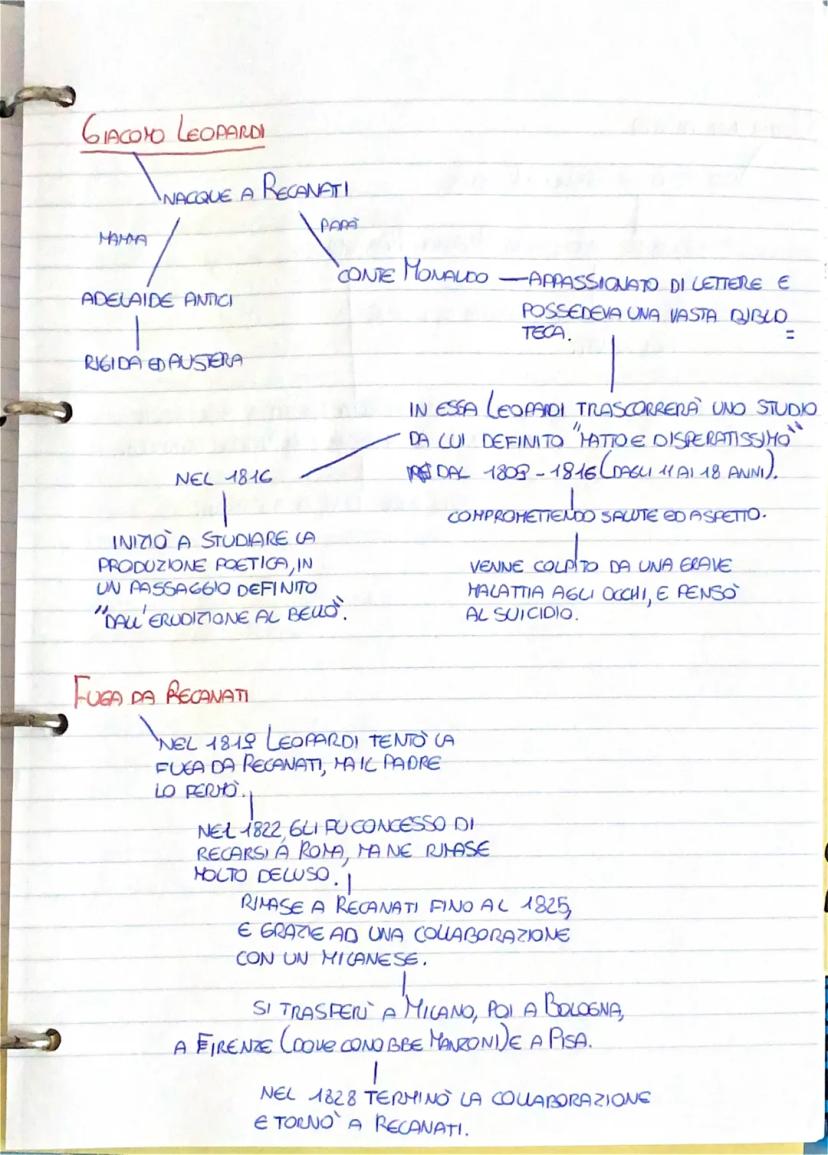 GIACOMO LEOPARDI
NACQUE A RECANATI
MAMMA
PAPÀ
ADELAIDE ANTICI
RIGIDA ED AUSTERA
CONTE MONALDO — APPASSIONATO DI LETTERE E
POSSEDEVA UNA VASTA BIBLIO
TECA.
IN ESSA LEOPARDI TRASCORRERÀ UNO STUDIO
DA LUI DEFINITO "MATTO E DISPERATISSIMO"
DAL 1809 - 1816 (DAGLI 11 AI 18 ANNI).
COMPROMETTENDO SALUTE ED ASPETTO.
VENNE COLPITO DA UNA GRAVE
MALATTIA AGLI OCCHI, E PENSÒ
AL SUICIDIO.
NEL 1816
INIZIÒ A STUDIARE LA
PRODUZIONE POETICA, IN
UN PASSAGGIO DEFINITO
"DALL'ERUDIZIONE AL BELLO".
FUGA DA RECANATI
NEL 1819 LEOPARDI TENTÒ LA
FUGA DA RECANATI, MA IL PADRE
LO FERMÒ.
NEL 1822, GLI FU CONCESSO DI
RECARSI A ROMA, MA NE RIMASE
MOLTO DELUSO.
RIMASE A RECANATI FINO AL 1825,
E GRAZIE AD UNA COLLABORAZIONE
CON UN MILANESE.
SI TRASFERÌ A MILANO, POI A BOLOGNA,
A FIRENZE (DOVE CONOBBE MANZONI) E A PISA.
NEL 1828 TERMINÒ LA COLLABORAZIONE
E TORNÒ A RECANATI.